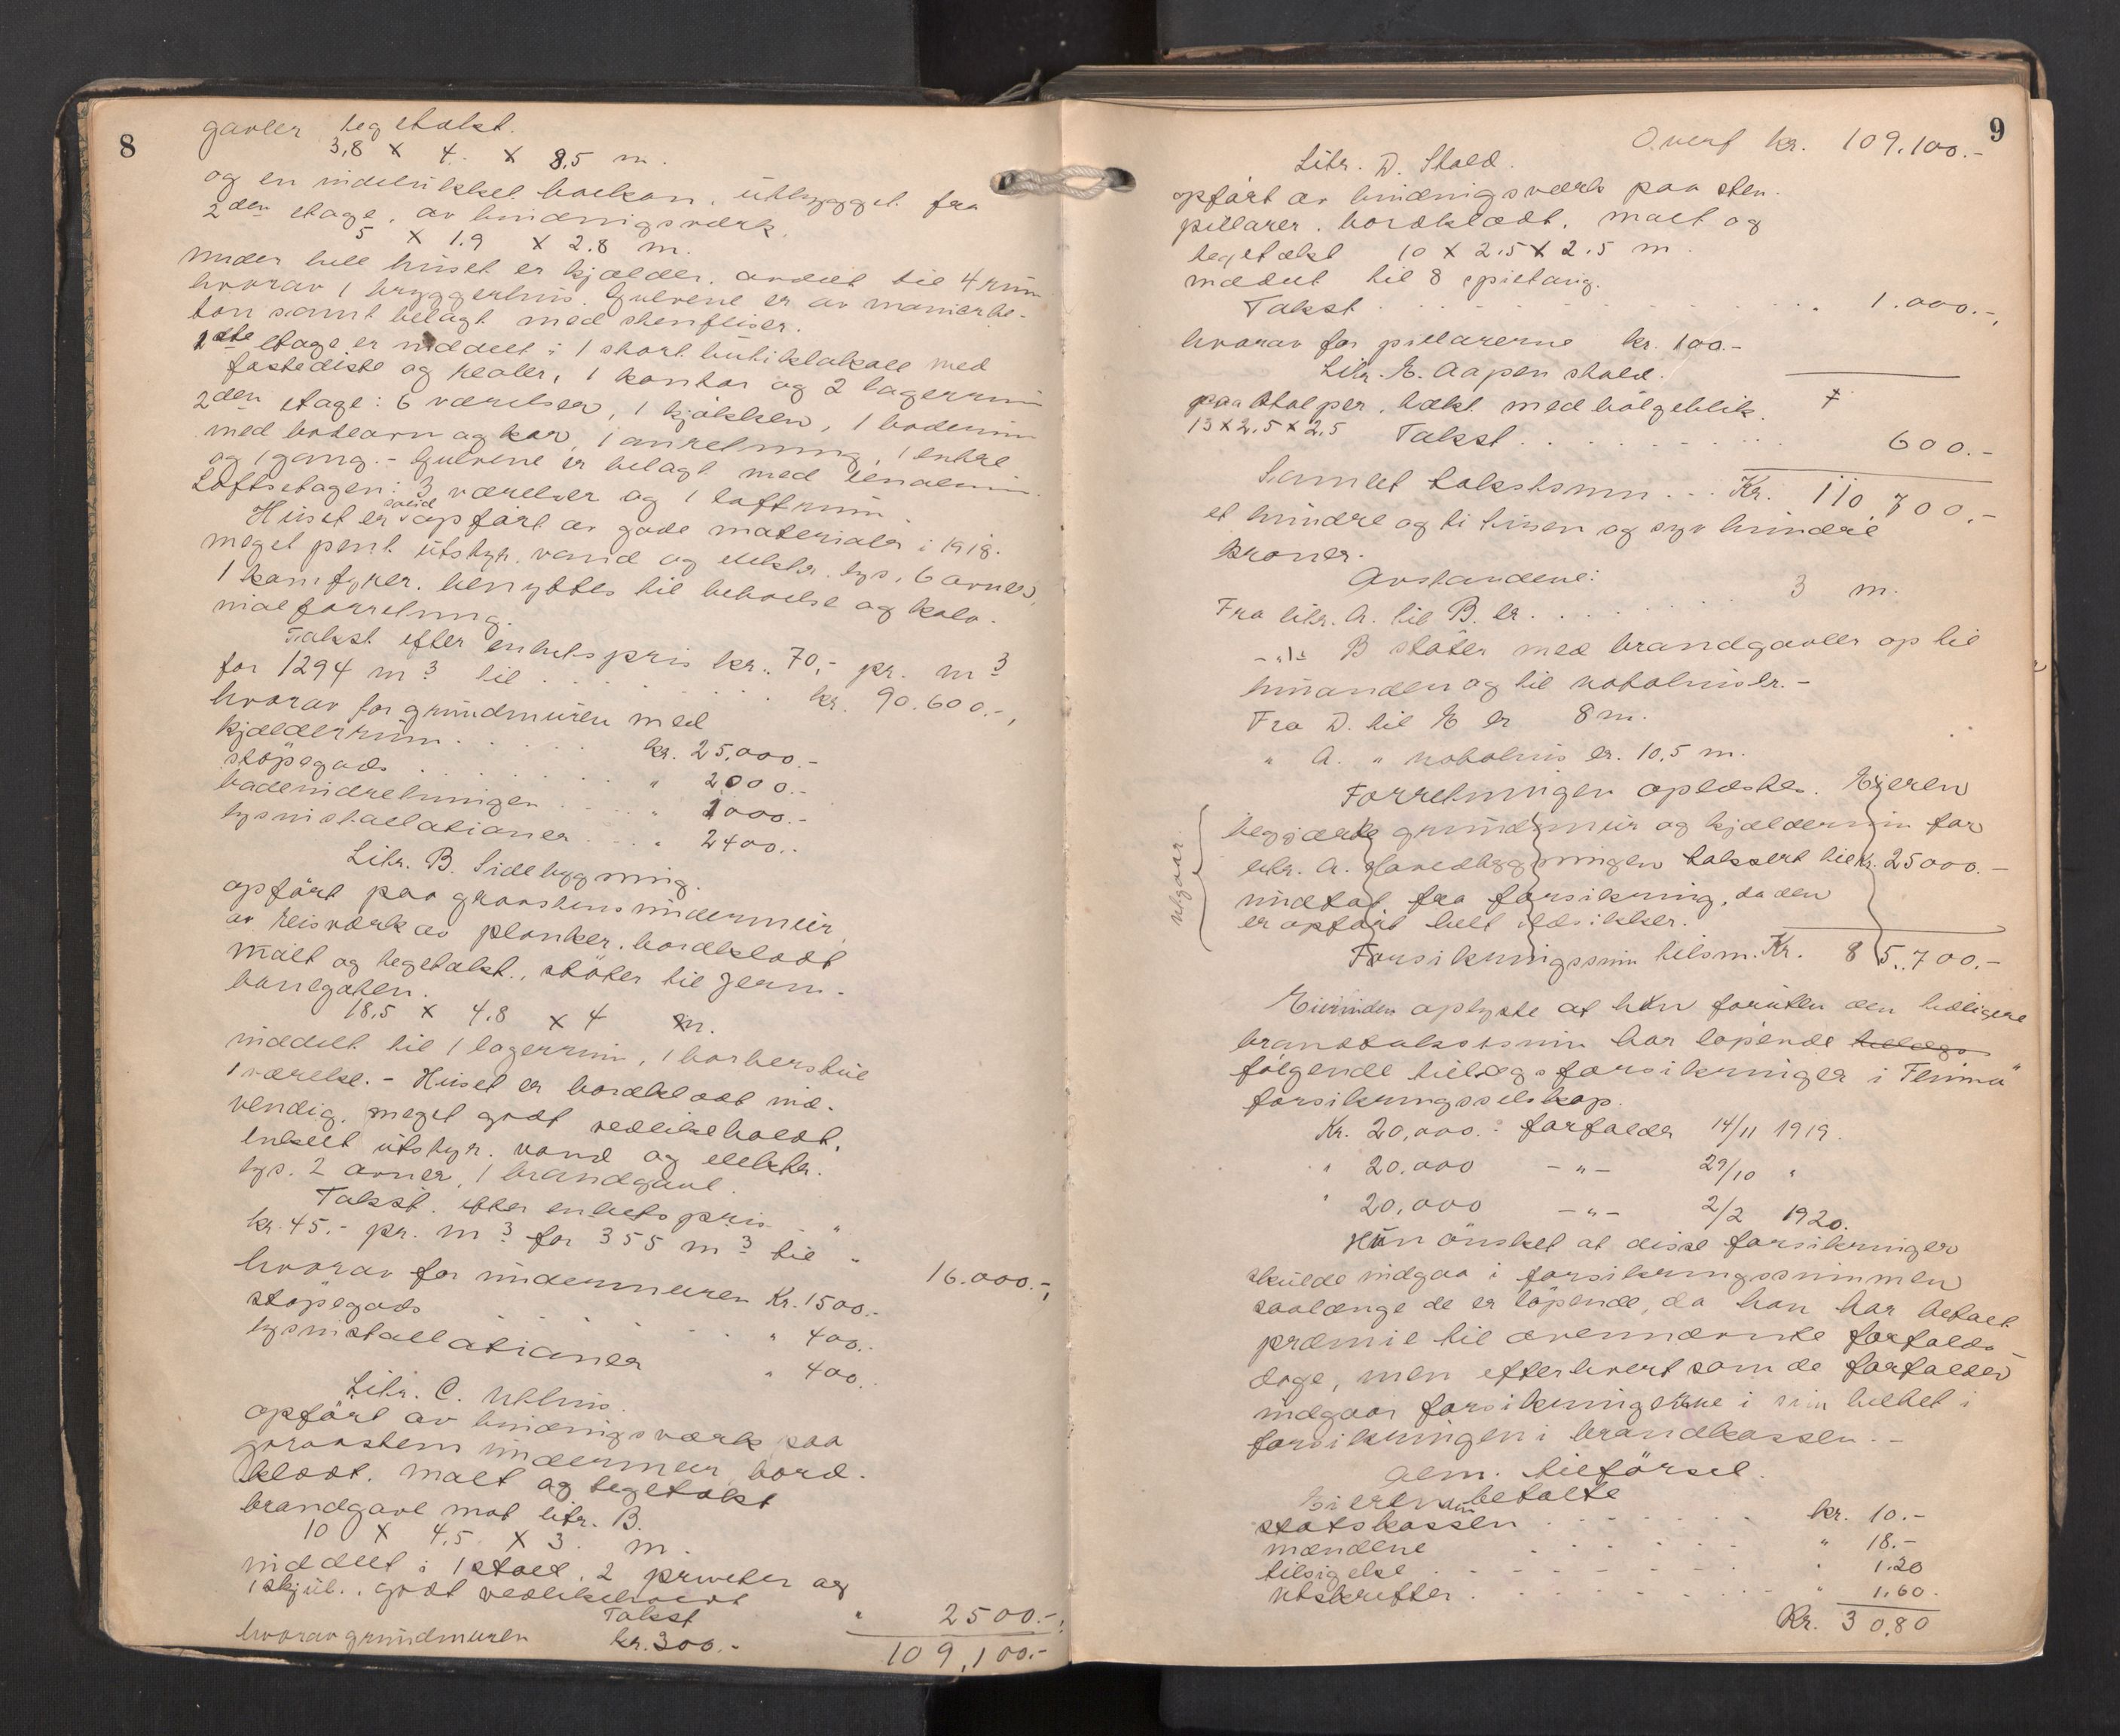 8
gavler tegltækt.
3,8 x 4. x 8,5 m.
og en indelukket balkon, utbygget fra
2den etage, av bindingsverk.
5 x 1.9 x 2.8 m.
Under hele huset er kjælder, avdelt til 4 rum
hvorav 1 bryggerhus. Gulvene er av
ton samt belagt med stenfliser.
1ste etage er inddelt i 1 stort butiklokale med
fastediske og realer, 1 kontor og 2 lagerrum
2den etage: 6 værelser, 1 kjøkken, 1 baderum
med badeovn og kar, 1 anretning, 1 entré
og 1 gang. - Gulvene er belagt med linoleum.
Loftsetagen: 3 værelser og 1 loftrum
Huset er solid opført av gode materialer i 1918.
meget pent utstyr. vand og elektr. lys, 6 ovner,
1 komfyrer. benyttes til beboelse og kolo-
nialforretning.
Takst efter enhetspris kr. 70,- pr. m3
for 1294 m3 til . . . . . kr. 90.600.-,
hvorav for grundmuren med
kjælderrum . . . . . kr. 25,000.-
støpegods . . . . . " 2000.-
badeindretningen . . . . " 1000.-
lysinstallationer . . . . 2400.-
Litr. B. Sidebygning.
opført paa graastens undermur,
av reisverk av planker, bordklædt
malt og tegltækt., støter til Jern-
banegaten.
18,5 x 4.8 x 4 m.
inddelt til 1 lagerrum, 1 barberstue
1 værelse. - Huset er bordklædt ind-
vendig, meget godt vedlikeholdt,
enkelt utstyr. vand og elektr.
lys. 2 ovner, 1 brandgavl.
Takst. efter enhetspris - "
kr. 45.- pr. m3 for 355 m3 til " 16.000.-,
hvorav for undermuren Kr. 1500.-
støpegods . . . . . " 400.-
lysinstallationer " 400.
Litr. C. Uthus.
opført av bindingsverk paa
graastens undermur, bord-
klædt. malt og tegltækt
brandgavl mot litr. B.
10 x 4,5 x 3. m.
inddelt i 1 stald, 2 priveter og
1 skjul., godt vedlikeholdt
Takst " 2500.-,
hvorav grundmuren kr. 300.-
109,100.-
9
Overf kr. 109.100.-
Litr. D. Stald.
opført av bindingsverk paa sten-
pillarer. bordklædt, malt og
tegltækt 10 x 2,5 x 2.5 m.
inddelt til 8 spiltaug.
Takst . . . . . 1.000.-,
hvorav for pillarerne kr. 100.-
Litr. E. Aapen stald.
paa stolper, tækt med bølgeblik.
13 x 2,5 x 2,5 Takst . . . . . 600.-
Samlet takstsum . . . Kr. 110.700.-
et hundre og ti tusen og syv hundre
kroner.
Avstandene:
Fra litr. A. til B. er . . . . . 3 m.
-"- B støter med brandgavler op til
hinanden og til nabohus er. -
Fra D. til E er 8 m.
" A. " nabohus er. 10,5 m.
Forretningen oplæstes. Eieren
utgaar.
begjærte grundmur og kjælderrum for
litr. A. Hovedbygningen taksert til kr. 25000.-
undtat fra forsikring, da den
er opført helt ildsikker.
Forsikringssum tilsm. Kr. 85.700.-
Eierinden oplyste at hun foruten den tidligere
brandtakstsum har løpende tillægs
følgende tillægsforsikringer i Flinua"
forsikringsselskap.
Kr. 20,000. : forfalder 14/11 1919.
" 20.000 -"- 29/10 "
" 20,000 -"- 2/2 1920.
Hun ønsket at disse forsikringer
skulde indgaa i forsikringssummen
saalænge de er løpende, da han har betalt
præmie til ovennævnte forfalds-
dage, men efterhvert som de forfalder
indgaar forsikringerne i sin helhet i
forsikringen i brandkassen. -
Alm. tilførsel.
Eierinden betalte
statskassen . . . . . kr. 10.-
mændene . . . . . " 18.-
tilsigelse . . . . . " 1.20
Utskrifter . . . . . " 1.60.
Kr. 30,80